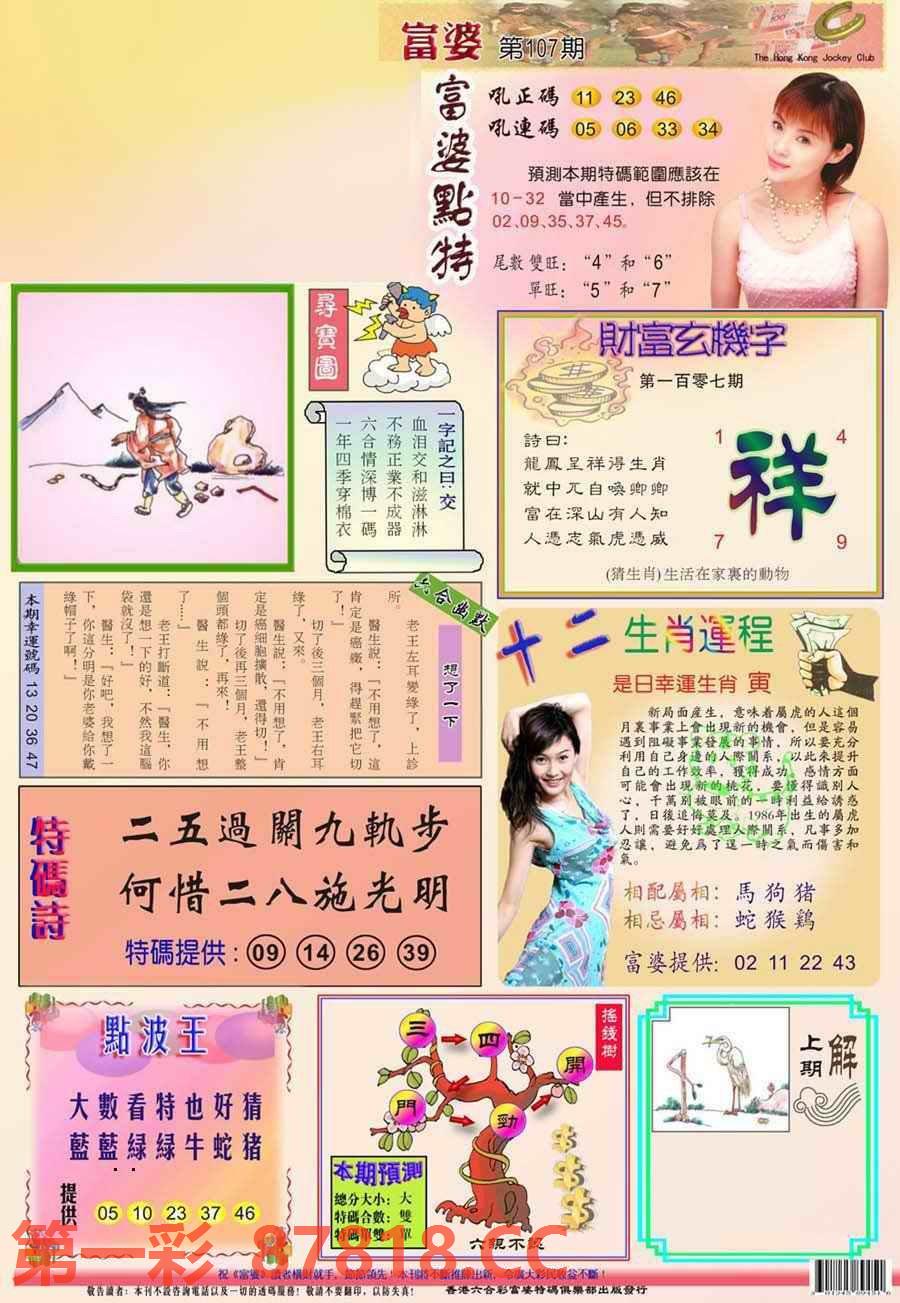 富婆 第107期
The Hong Kong Jockey Club
富婆點特
吼正碼 11 23 46
吼連碼 05 06 33 34
預測本期特碼範圍應該在
10-32 當中產生，但不排除
02、09、35、37、45。
尾數雙旺：“4”和“6”
單旺：“5”和“7”
尋寶圖
一字記之曰：交
血泪交和滋淋淋
不務正業不成器
六合情深博一碼
一年四季穿棉衣
財富玄機字
第一百零七期
詩曰：
龍鳳呈祥得生肖
就中兀自喚卿卿
富在深山有人知
人憑志氣虎憑威
1 4
祥
7 9
(猜生肖)生活在家裏的動物
六合幽默
想了一下
老王左耳變綠了，上診
所。
醫生說：『不用想了，這
肯定是癌癥，得趕緊把它切
了！』
切了後三個月，老王右耳
綠了，又來。
醫生說：『不用想了，肯
定是癌細胞擴散，還得切！』
切了後再三個月，老王整
個頭都綠了，再來！
醫生說：『不用想
了……』
老王打斷道：『醫生，你
還是想一下的好，不然我這腦
袋就沒了！』
醫生：『好吧，我想了一
下，你這分明是你老婆給你戴
綠帽子了啊！』
本期幸運號碼 13 20 36 47
十二生肖運程
是日幸運生肖 寅
新局面産生，意味着屬虎的人這個
月裏事業上會出現新的機會，但是容易
遇到阻礙事業發展的事情，所以要充分
利用自己身邊的人際關系，以此來提升
自己的工作效率，獲得成功。感情方面
可能會出現新的桃花，要懂得識別人
心，千萬别被眼前的一時利益給誘惑
了，日後追悔莫及。1986年出生的屬虎
人則需要好好處理人際關系，凡事多加
忍讓，避免爲了逞一時之氣而傷害和
氣。
相配屬相：馬狗猪
相忌屬相：蛇猴鷄
富婆提供：02 11 22 43
特碼詩
二五過關九軌步
何惜二八施光明
特碼提供：09 14 26 39
點波王
大數看特也好猜
藍藍綠綠牛蛇猪
提供 05 10 23 37 46
搖錢樹
三 四 開
門 勁
本期預測
總分大小：大
特碼合數：雙
特碼單雙：單
六親不認
上期解
第一彩 87818.CC
敬告讀者：本刊不設咨詢電話以及一切的透碼服務！敬請不要翻印，以防失真！
香港六合彩富婆特碼俱樂部出版發行